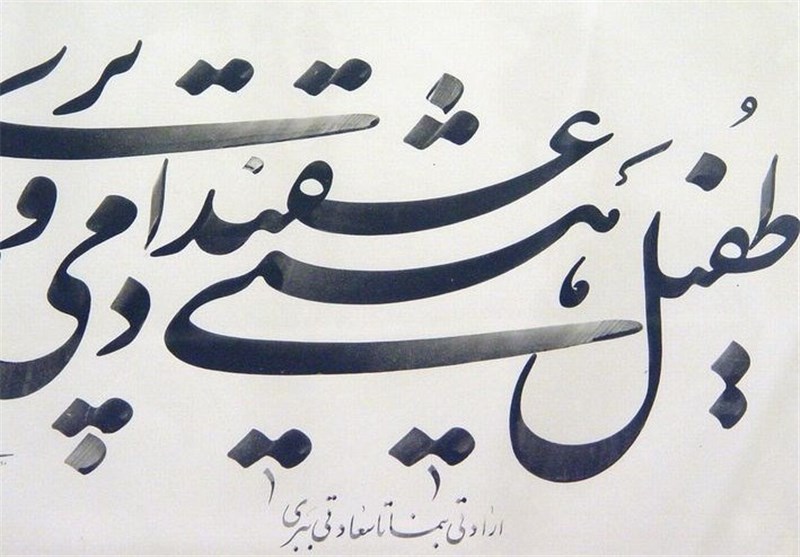 طُفیل هستی عشقند آدمی و پری
ارادتی بنما تا سعادتی ببری